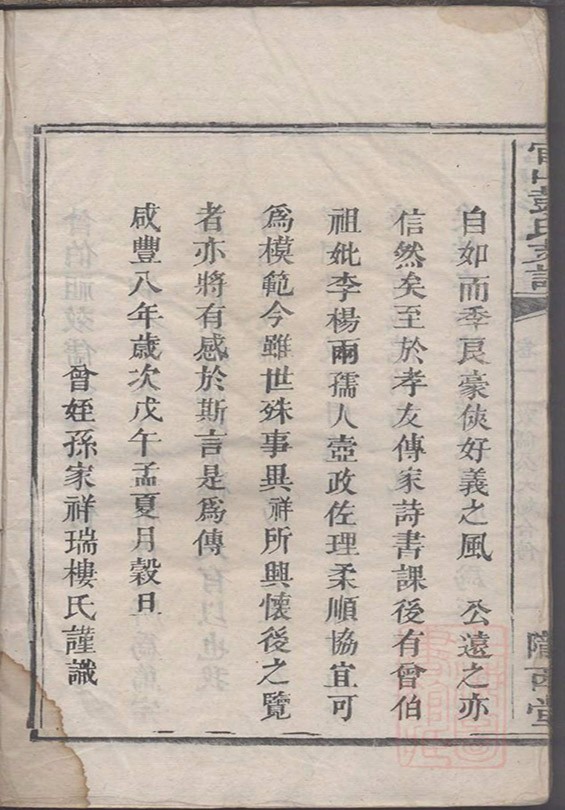 自如而季良豪俠好義之風　公遠之亦
信然矣至於孝友傳家詩書課後有曾伯
祖妣李楊兩孺人壼政佐理柔順協宜可
爲模範今雖世殊事異祥所興懷後之覽
者亦將有感於斯言是爲傳
咸豐八年歲次戊午孟夏月穀旦
曾姪孫家祥瑞樓氏謹識